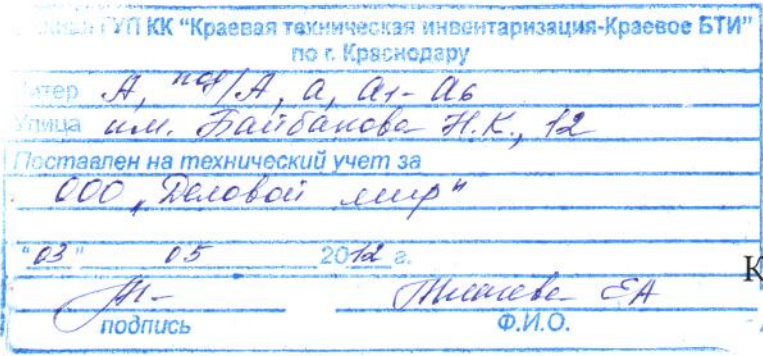 ГУП КК "Краевая техническая инвентаризация-Краевое БТИ"
по г. Краснодару
Литер А, под/А, а, а1- а6
Улица им. Байбакова Н.К., 12
Поставлен на технический учет за
ООО "Деловой мир"
"03" 05 2012 г.
ЕА
подпись Ф.И.О.
К